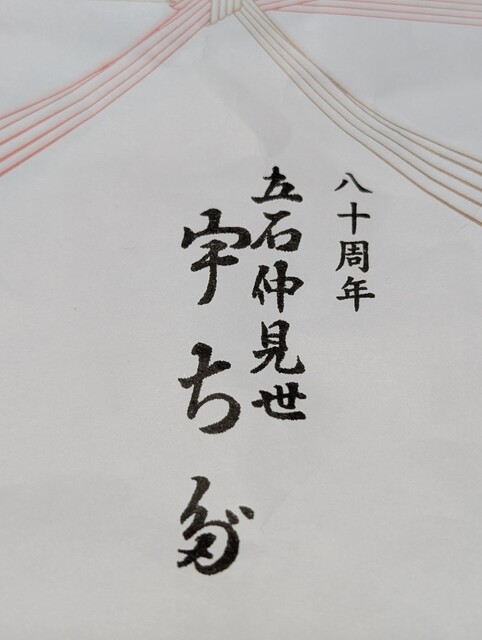 八十周年
立石仲見世
宇ち多゛